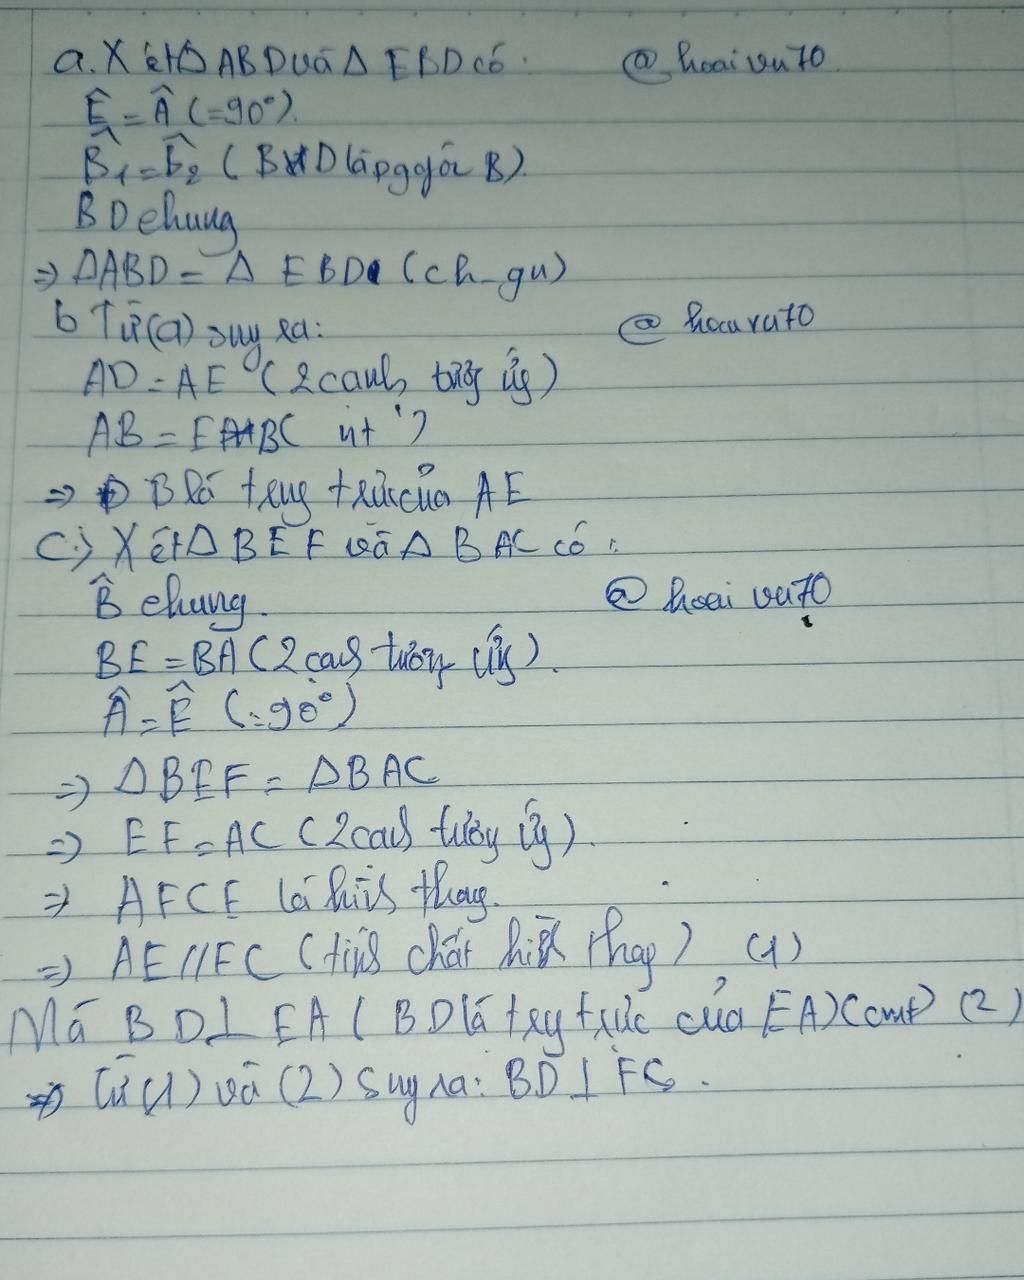 a. Xét Δ ABD và Δ EBD có: @hoaivu70
Ê = Â (=90°).
B̂1 = B̂2 (BD là pg góc B).
BD chung
=> ΔABD = Δ EBD (ch-gn)
b Từ (a) suy ra: @hoaivu70
AD = AE (2 cạnh tương ứng)
AB = EB ( nt )
=> D B là trung trực của AE
C.) Xét Δ BEF và Δ BAC có:
B̂ chung. @hoaivu70
BE = BA (2 cạnh tương ứng).
Â = Ê (=90°)
=> ΔBEF = ΔBAC
=> EF = AC (2 cạnh tương ứng).
=> AFCE là hình thang.
=> AE // FC (tính chất hình thang) (1)
Mà BD ⊥ EA (BD là trung trực của EA) (cmt) (2)
=> Từ (1) và (2) suy ra: BD ⊥ FC.